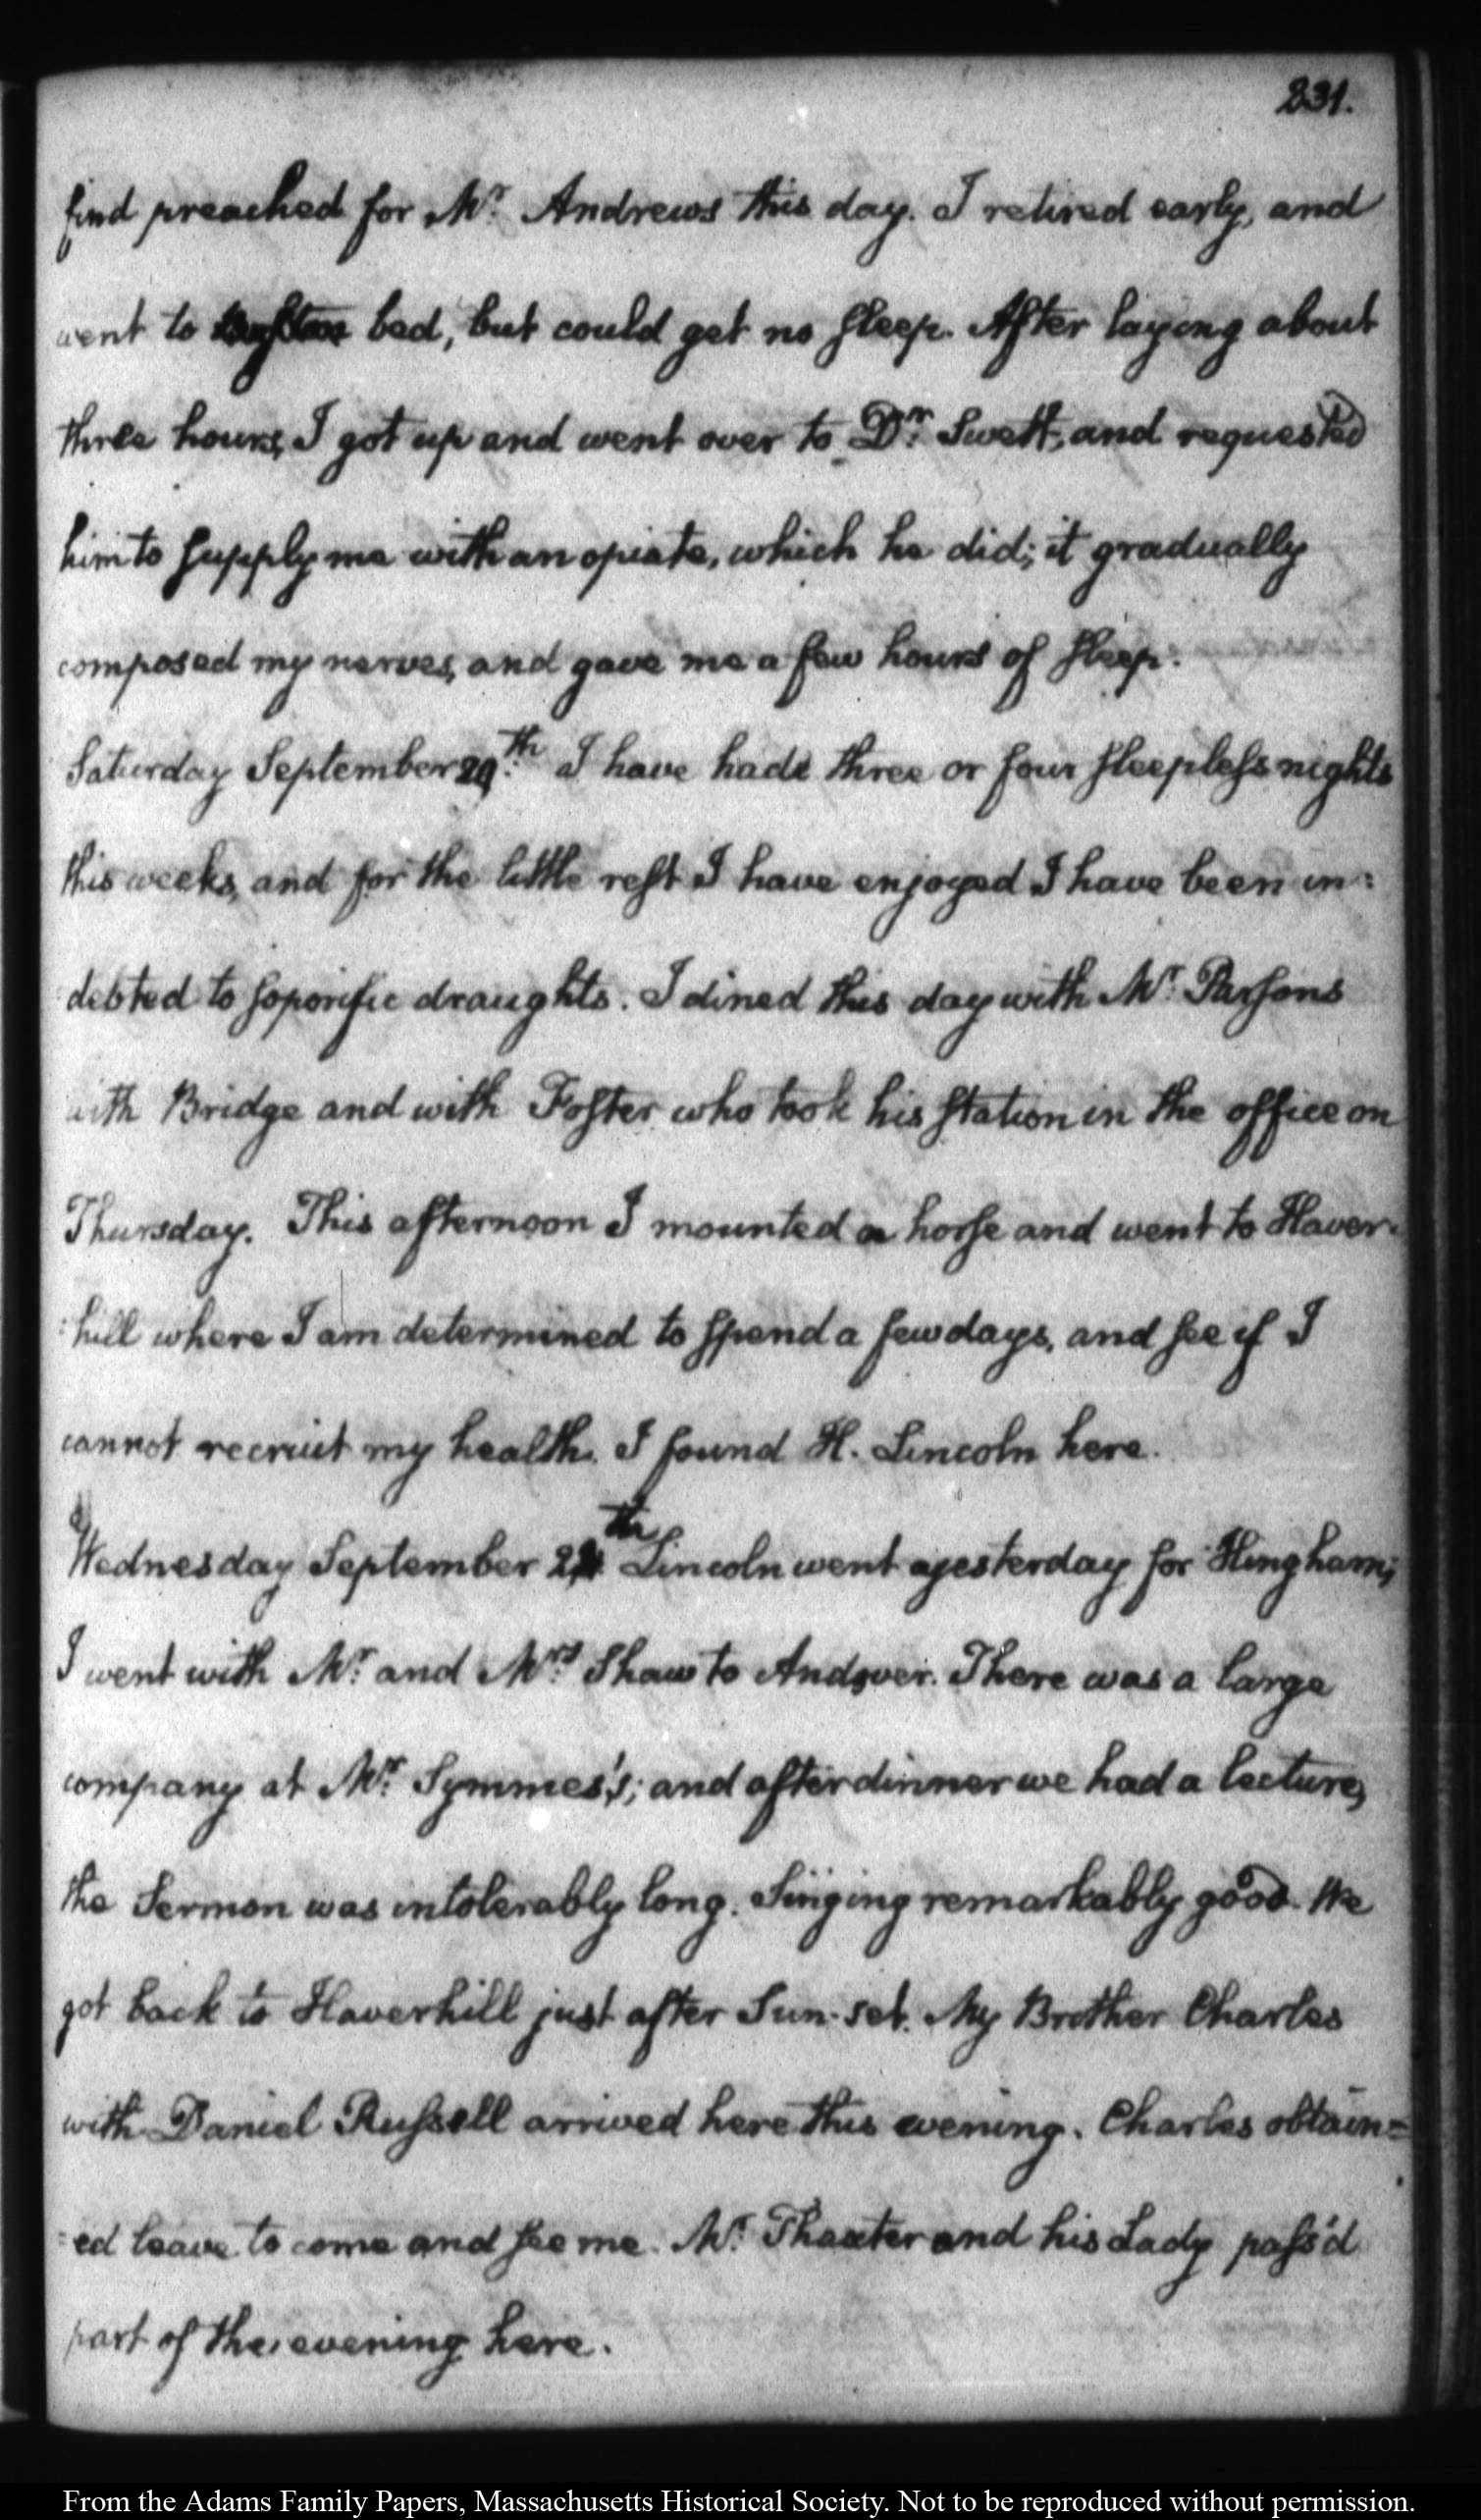 231.
find preached for Mr. Andrews this day. I retired early, and
went to bed, but could get no sleep. After laying about
three hours, I got up and went over to Dr. Swett, and requested
him to supply me with an opiate, which he did; it gradually
composed my nerves, and gave me a few hours of sleep.
Saturday September 20th. I have had three or four sleepless nights
this week, and for the little rest I have enjoyed I have been in=
debted to soporific draughts. I dined this day with Mr. Parsons
with Bridge and with Foster who took his station in the office on
Thursday. This afternoon I mounted a horse and went to Haver=
:hill where I am determined to spend a few days, and see if I
cannot recruit my health. I found H. Lincoln here.
Wednesday September 24th Lincoln went yesterday for Hingham;
I went with Mr. and Mrs. Shaw to Andover. There was a large
company at Mr. Symmes's; and after dinner we had a lecture,
the Sermon was intolerably long. Singing remarkably good. We
got back to Haverhill just after Sun-set. My Brother Charles
with Daniel Russell arrived here this evening. Charles obtain=
=ed leave to come and see me. Mr. Thaxter and his Lady pass'd
part of the evening here.
From the Adams Family Papers, Massachusetts Historical Society. Not to be reproduced without permission.